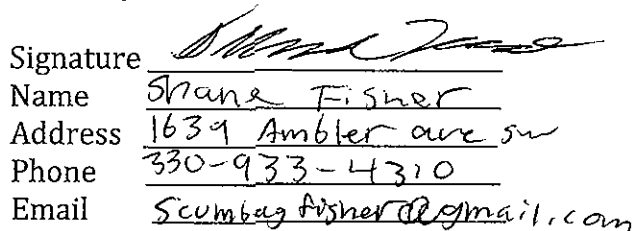 Signature
Name Shane Fisher
Address 1639 Ambler ave sw
Phone 330-933-4310
Email Scumbagfisher@gmail.com